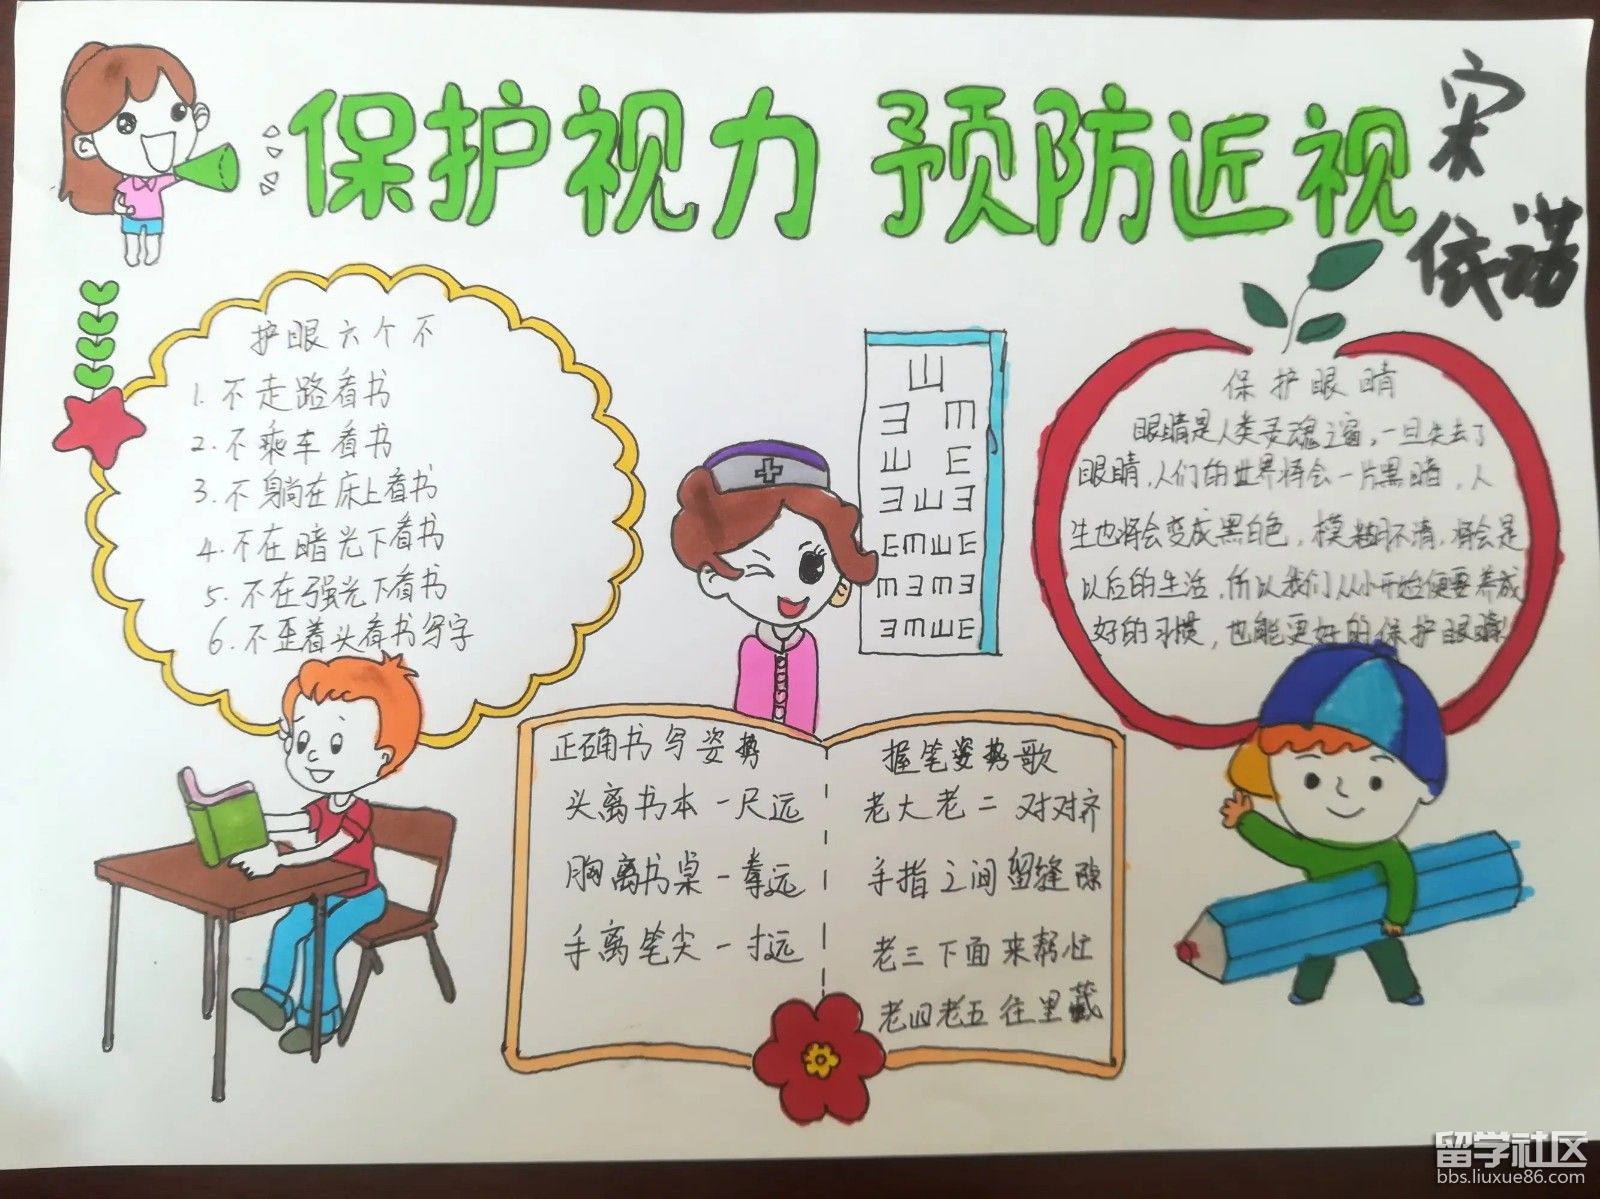 保护视力 预防近视
宋
依诺
护眼六个不
1.不走路看书
2.不乘车看书
3.不躺在床上看书
4.不在暗光下看书
5.不在强光下看书
6.不歪着头看书写字
山
ヨ m
山 E
ヨ山ヨ
Em山E
mヨmヨ
ヨm山E
保护眼睛
眼睛是人类灵魂之窗,一旦失去了
眼睛,人们的世界将会一片黑暗,人
生也将会变成黑白色,模糊不清,将会是
以后的生活,所以我们从小开始便要养成
好的习惯,也能更好的保护眼睛!
正确书写姿势
头离书本一尺远
胸离书桌一拳远
手离笔尖一寸远
握笔姿势歌
老大老二对对齐
手指之间留缝隙
老三下面来帮忙
老四老五往里藏
留学社区
bbs.liuxue86.com